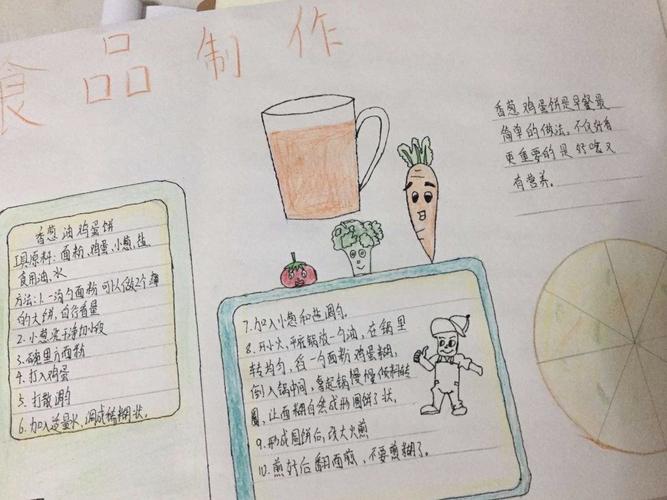 食品制作
香葱油鸡蛋饼
工具原料:面粉,鸡蛋,小葱,盐
食用油,水
方法:1.一汤勺面粉可以做2个薄
的大饼,自行看量
2.小葱洗干净加小段
3.碗里倒面粉
4.打入鸡蛋
5.打散调匀
6.加入适量水,调成稀糊状。
香葱鸡蛋饼是早餐最
简单的做法。不仅好看
更重要的是好吃又
有营养。
7.加入小葱和盐调匀。
8.开小火,平底锅放一勺油,在锅里
转均匀,舀一个面粉鸡蛋糊,
倒入锅中间,拿起锅慢慢倾斜转
圈,让面糊自然成形圆饼了状,
9.形成圆饼后,改大火煎
10.煎好后翻面煎,不要煎糊了。